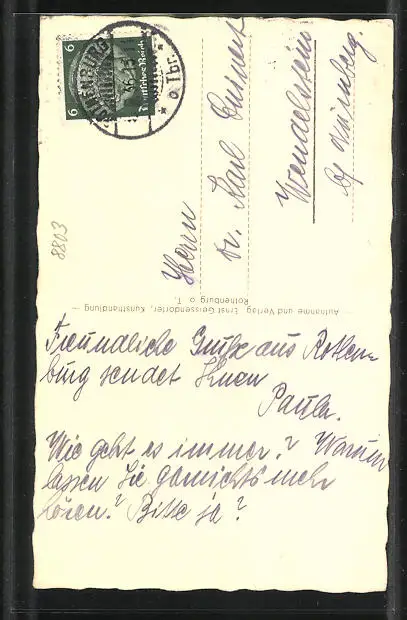 Freundliche Grüße aus Rothen=
burg sendet Ihnen
Paula.
Wie geht es immer? Warum
lassen Sie garnichts mehr
hören? Bitte ja?
Herrn
Dr. Karl
Wendelstein
b/ Nürnberg.
Aufnahme und Verlag: Ernst Geissendörfer, Kunsthandlung
Rothenburg o. T.
6 Deutsches Reich 6
o. Tbr.
8803